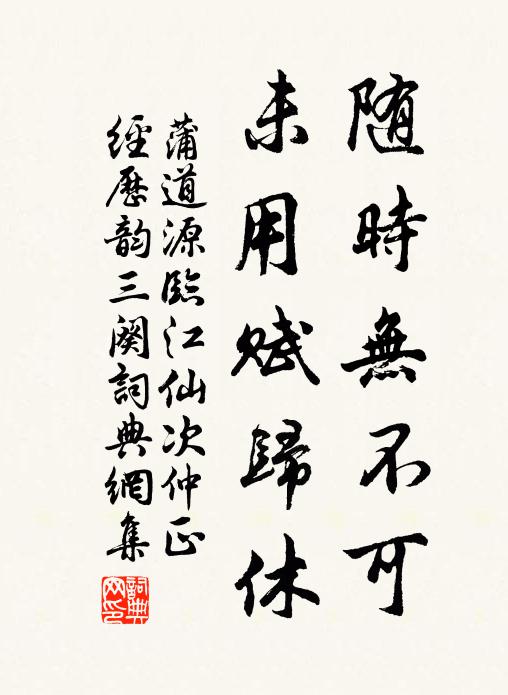 随時無不可
未用賦歸休
蒲道源臨江仙次仲正
經歷韵三闋詞典網集
詞典網印